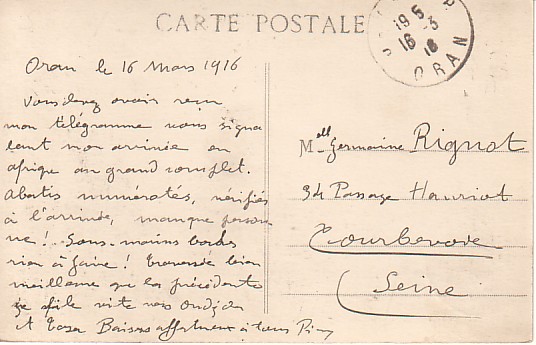 CARTE POSTALE
ORAN
19 5
16 -3
16
Oran le 16 Mars 1916
Vous devez avoir reçu
mon télégramme vous signa
lant mon arrivée en
afrique au grand complet.
abatis numérotés, vérifiés
à l'arrivée, manque person
ne!.. Sous-mains bordes
rien à faire! Traversée bien
meilleure que la précédente
je file vite vers
et Taza Baisers affectueux à tous
Melle Germaine Rignot
34 Passage Hauriot
Courbevoie
Seine